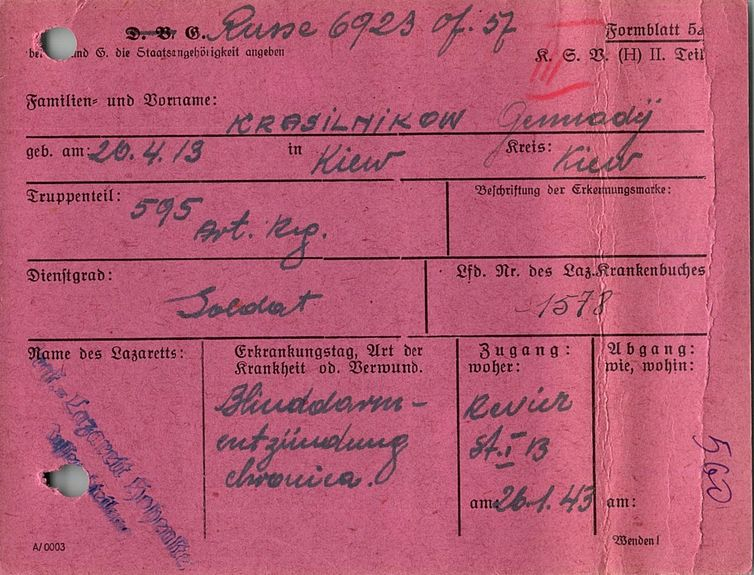 D. B. G. Russe 6923 of. 57 Formblatt 5a
und G. die Staatsangehörigkeit angeben
K. S. V. (H) II. Teil
III
Familien- und Vorname:
KRASILNIKOW Gennadij
geb. am: 20.4.13 in Kiew Kreis: Kiew
Truppenteil: Beschriftung der Erkennungsmarke:
595
Art. Reg.
Dienstgrad: Lfd. Nr. des Laz.Krankenbuches
Soldat 1578
Name des Lazaretts: Erkrankungstag, Art der Zugang: Abgang:
Krankheit od. Verwund. woher: wie, wohin:
Blinddarm- Revier
entzündung St. I B
chronica.
560
am: 26.1.43 am:
Lazarett
A/0003 Wenden!